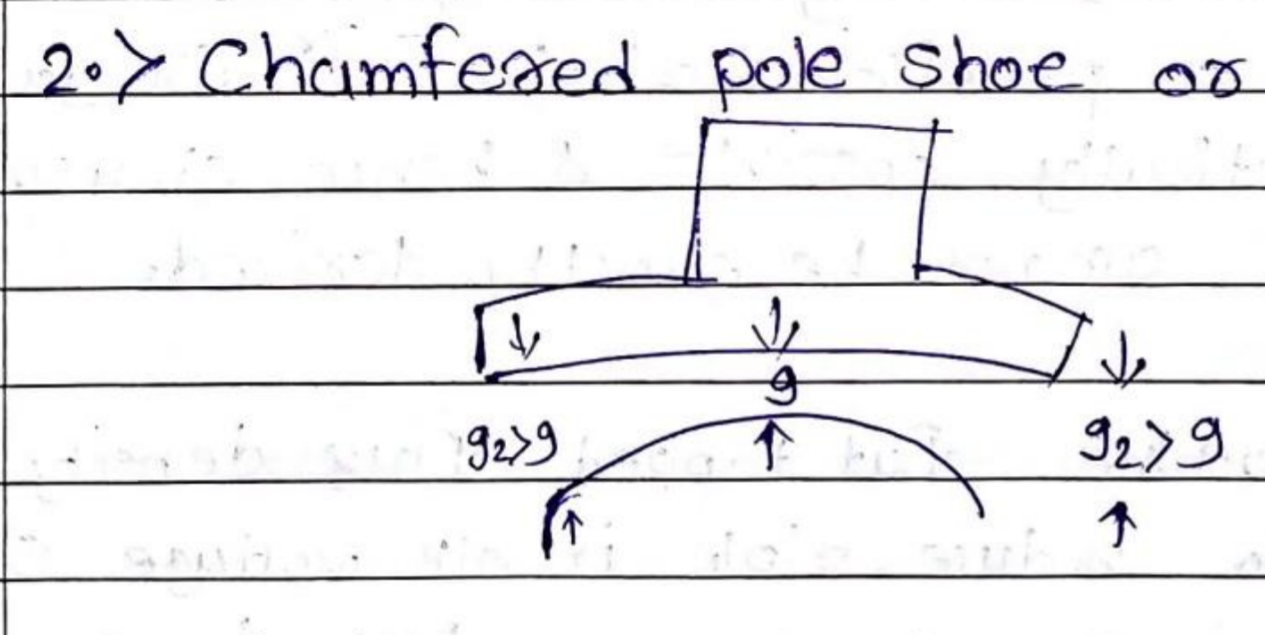 2.> Chamfered pole shoe or
g
g2>g g2>g